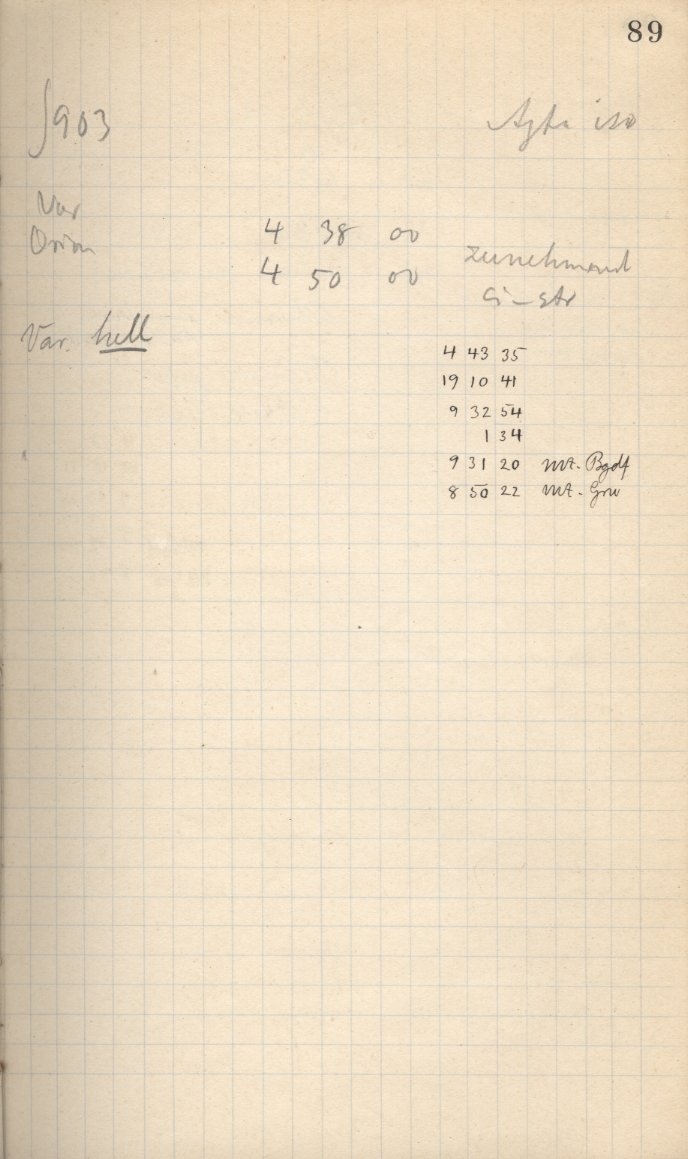 89
∫903 Agfa iso
Var
Orion 4 38 00 zunehmend
4 50 00 ci-str
Var. hell
4 43 35
19 10 41
9 32 54
1 34
9 31 20 mt. Bgdf
8 50 22 mt. Grw